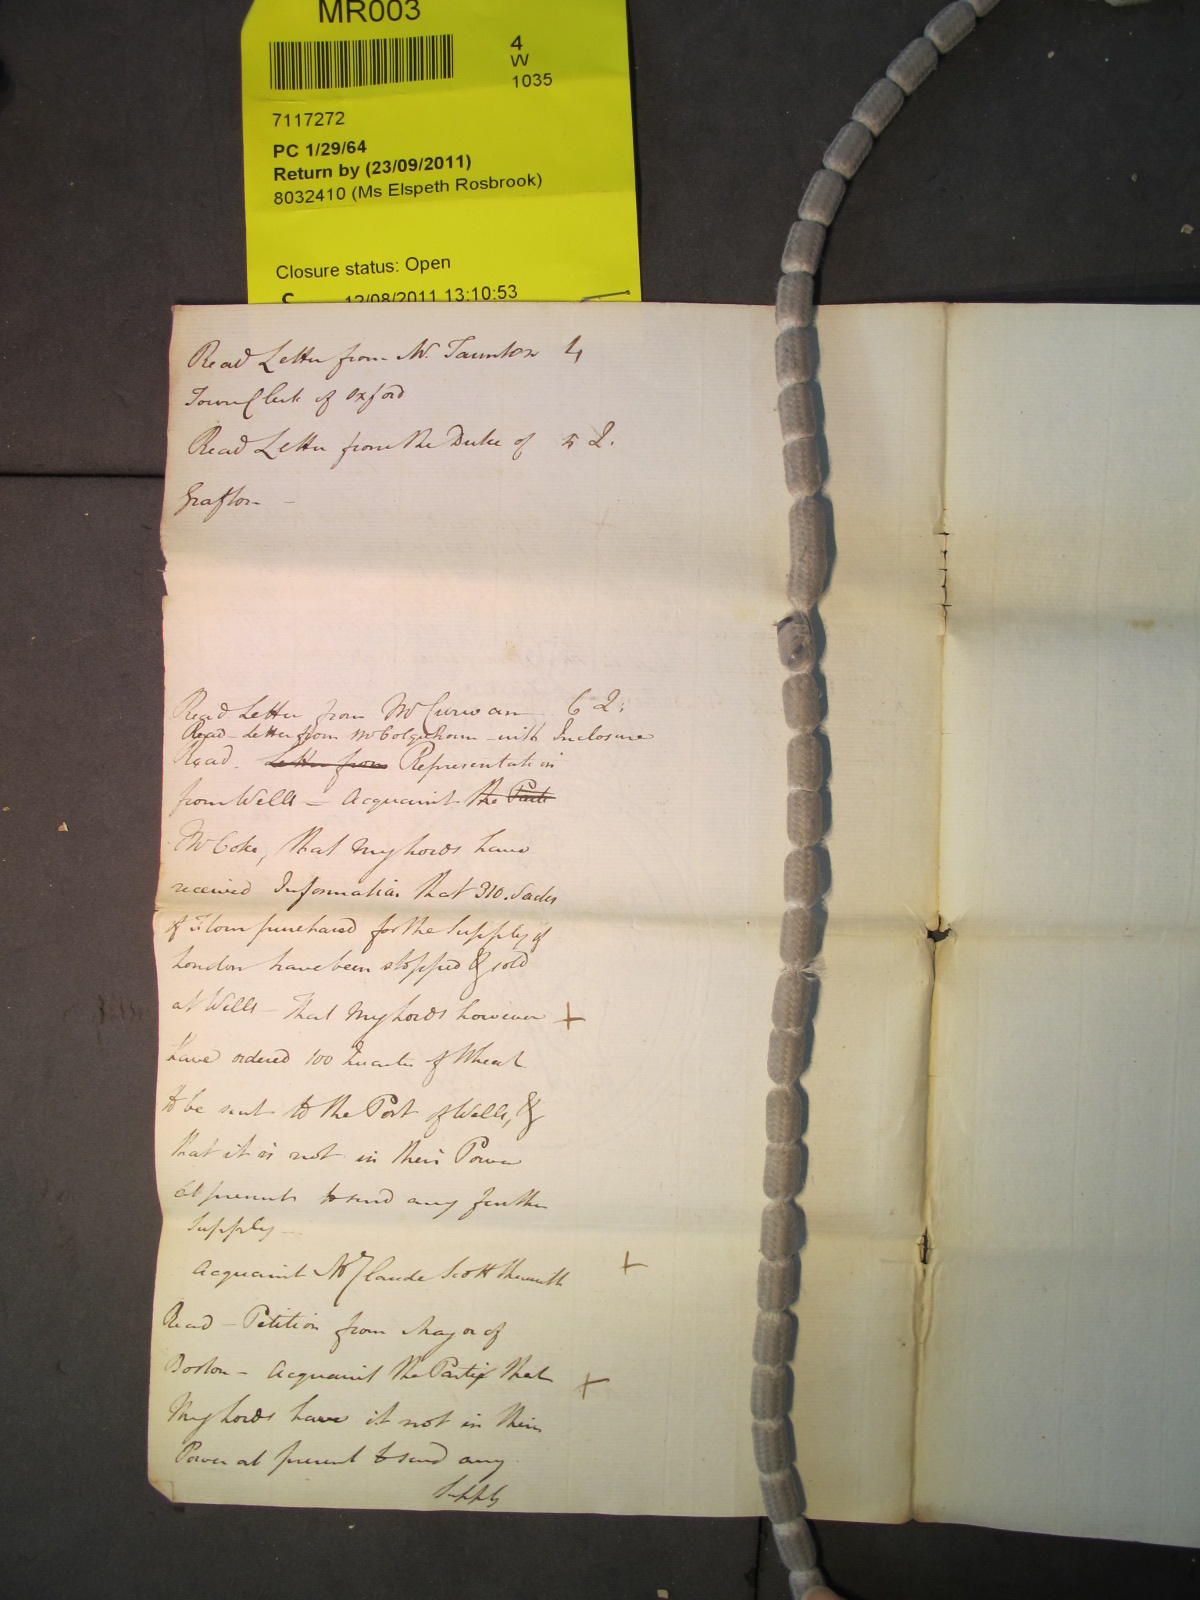 MR003
4
W
1035
7117272
PC 1/29/64
Return by (23/09/2011)
8032410 (Ms Elspeth Rosbrook)
Closure status: Open
12/08/2011 13:10:53
Read Letter from Mr. Taunton 4
Town Clerk of Oxford
Read Letter from the Duke of 5 2.
Grafton -
Read Letter from Mr Curwan 6 2.
Read - Letter from Mr Colquhoun - with Inclosure
Read. Letter from Representation
from Wells - Acquaint the Parti
Mr Coke, that My Lords have
received Information that 310. Sacks
of Flour purchased for the Supply of
London have been stopped & sold
at Wells - That My Lords however +
have ordered 100 Quarters of Wheat
to be sent to the Port of Wells, &
that it is not in their Power
at present to send any further
Supply -
Acquaint Mr Claude Scott therewith +
Read - Petition from Mayor of
Boston - Acquaint the Parties that +
My Lords have it not in their
Power at present to send any
Supply